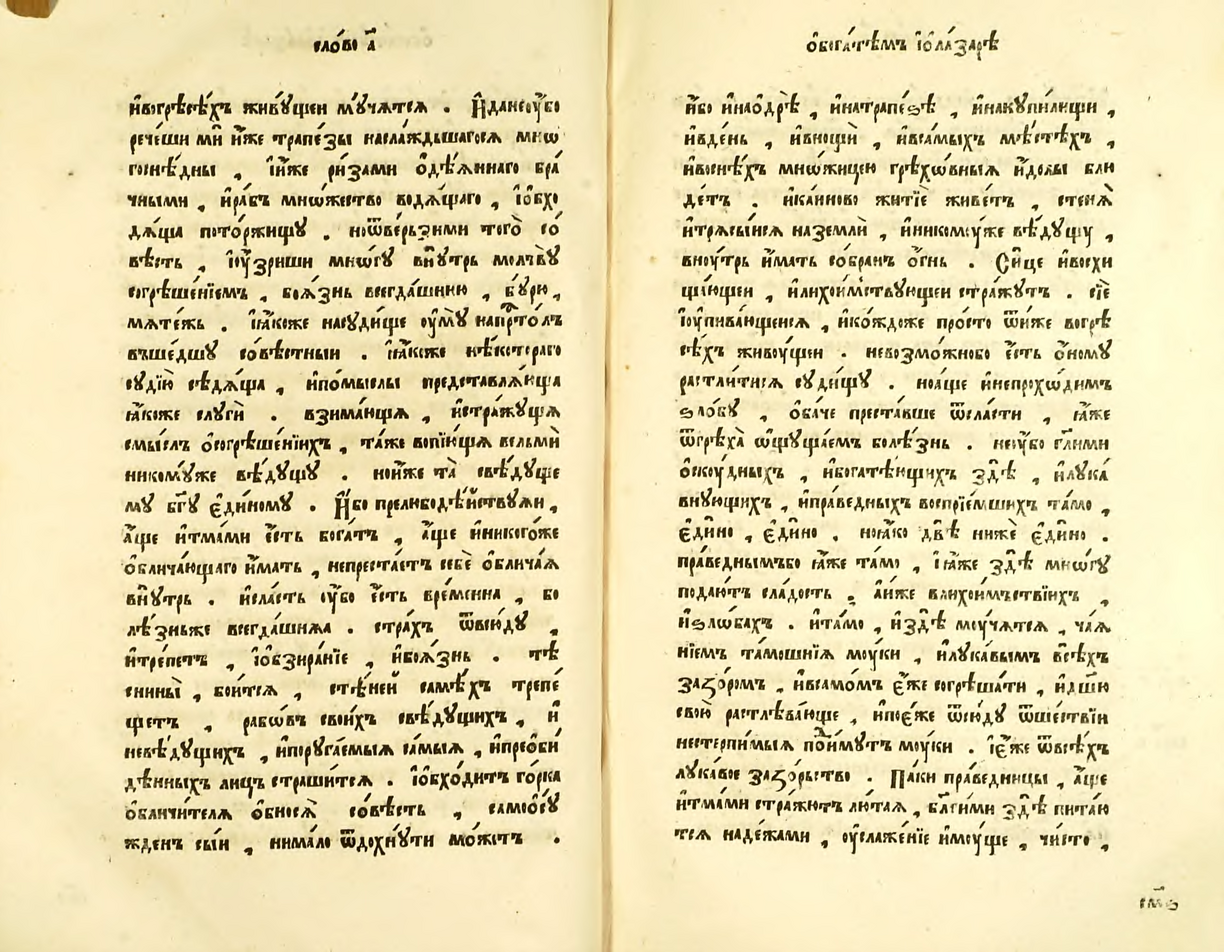 сло́во а҃
и҆вогрѣсѣ́хъ живꙋ́щеи мꙋ́чѧтсѧ . И҆данеоу҆́бо
рече́ши мѝ и҆́же трапе́зы наслажⷣьшагосѧ мнѡ
госнѣ́дны , і҆и҆́же ри́зами ѻ҆дѣ́ѧннаго бра́
чными , и҆ра́бъ мно́жество водѧ́щаго , і҆ѻ҆бхо
дѧ́ща пото́ржищꙋ . ноѿве́рьзими того̀ со́
вѣсть , і҆оу҆́зриши мно́гꙋ внꙋ́трь молчвꙋ̀
согрѣше́нїемъ , боѧ́знь всегда́шнюю , бꙋ́рю ,
мѧте́жь . і҆ꙗ҆́коже насꙋди́ще оу҆мꙋ̀ напрⷭ҇то́лъ
въше́дшꙋ со́вѣстныи . і҆ꙗ҆́коже нѣ́котораго
сꙋдїю̀ сѣдѧ́ща , и҆по́мыслы представлѧ́юща
ꙗ҆́коже слꙋгѝ . взима́ющѧ , и҆стра́жꙋщѧ
смы́слъ ѻ҆согрѣше́нїихъ , та́же вопїю́щѧ вельмѝ
никомꙋ́же вѣ́дꙋщꙋ . нои҆́же та̀ свѣ́дꙋще
мꙋ бг҃ꙋ є҆ди́номꙋ . И҆́бо прелюбодѣ́йствꙋѧи ,
а҆́ще и҆тма́ми є҆́сть бога́тъ , а҆́ще и҆никого́же
ѻ҆блича́ющаго и҆́мать , непреста́етъ себѐ ѻ҆блича́ѧ
внꙋ́трь . и҆сла́сть оу҆́бо є҆́сть вре́менна , бо
лѣ́зньже всегда́шнѧѧ . стра́хъ ѿвсю́дꙋ ,
и҆тре́петъ , і҆ѻ҆бзира́нїе , и҆боѧ́знь . тѣ́
сниныї , бои́тсѧ , стѣ́ней самѣ́хъ трепе́
щетъ , рабѡ́въ свои́хъ свѣ́дꙋщихъ , и҆
невѣ́дꙋщихъ , и҆порꙋга́емыѧ са́мыѧ , и҆прео́би
дѣ́нныхъ ли́цъ страши́тсѧ . і҆ѻ҆бхо́дитъ го́рка
ѻ҆бличи́телѧ ѻ҆бносѧ̀ со́вѣсть , самоо́сꙋ
жденъ сы́и , нима́ло ѿдохнꙋ́ти мо́жетъ .
ѻ҆бога́тѣмъ і҆ѻ҆ла́зарѣ
и҆́бо и҆наѻ҆дрѣ̀ , и҆натрапе́ѕѣ , и҆накꙋпи́лищи ,
и҆вде́нь , и҆внощѝ , и҆вса́мыхъ мѣ́стѣхъ ,
и҆воснѣ́хъ мно́жицею грѣхо́вныѧ и҆́долы блю
де́тъ . и҆ка́иново житїѐ живе́тъ , стенѧ̀
и҆трѧсы́исѧ наземлѝ , и҆никомꙋ́же вѣ́дꙋщꙋ ,
внꙋ́трь и҆́мать со́бранъ ѻ҆́гнь . Си́це и҆восхи
ща́ющеи , и҆лихои́мствꙋющеи стра́жꙋтъ . сїѐ
і҆оу҆пива́ющеисѧ , и҆ко́ждоже про́сто ѿи҆́же вогрѣ
сѣ́хъ живоу́щеи . невозмо́жнобо є҆́сть ѻ҆́номꙋ
растли́тисѧ сꙋди́щꙋ . ноа҆́ще и҆непрохо́димъ
ѕло́бꙋ , ѻ҆ба́че преста́вше ѿсла́сти , ꙗ҆́же
ѿгрѣха̀ ѡ҆щꙋща́емъ болѣ́знь . неоу҆́бо гл҃ими
ѻ҆скоу́дныхъ , и҆богатѣ́ющихъ здѣ̀ , и҆лꙋка́
внꙋющихъ , и҆пра́ведныхъ воспрїе́мшихъ та́мо ,
є҆ди́но , є҆ди́но . ноꙗ҆́ко двѣ̀ нижѐ є҆ди́но .
пра́веднымъбо ꙗ҆́же та́мо , і҆ꙗ҆́же здѣ̀ мно́гꙋ
подаю́тъ сла́дость . а҆и҆́же влихои́мъствїихъ ,
и҆ѕло́бахъ . и҆та́мо , и҆здѣ̀ моу́чѧтсѧ , ча́ѧ
нїемъ та́мошнїѧ моу́ки , и҆лꙋка́вымъ всѣ́хъ
зазо́ромъ , и҆всамо́мъ є҆́же согрѣша́ти , и҆дш҃ꙋ
свою̀ растлѣва́юще , и҆поє҆́же ѿсю́дꙋ ѿше́ствїи
нестерпи́мыѧ по́имꙋтъ моу́ки . і҆є҆́же ѿвсѣ́хъ
лꙋка́вое зазо́рьство . Па́ки пра́ведницы , а҆́ще
и҆тма́ми стра́жютъ лю́таѧ , бл҃ги́ми здѣ̀ пита́ю
тсѧ наде́жами , оу҆слаже́нїе и҆мꙋ́ще , чи́сто ,